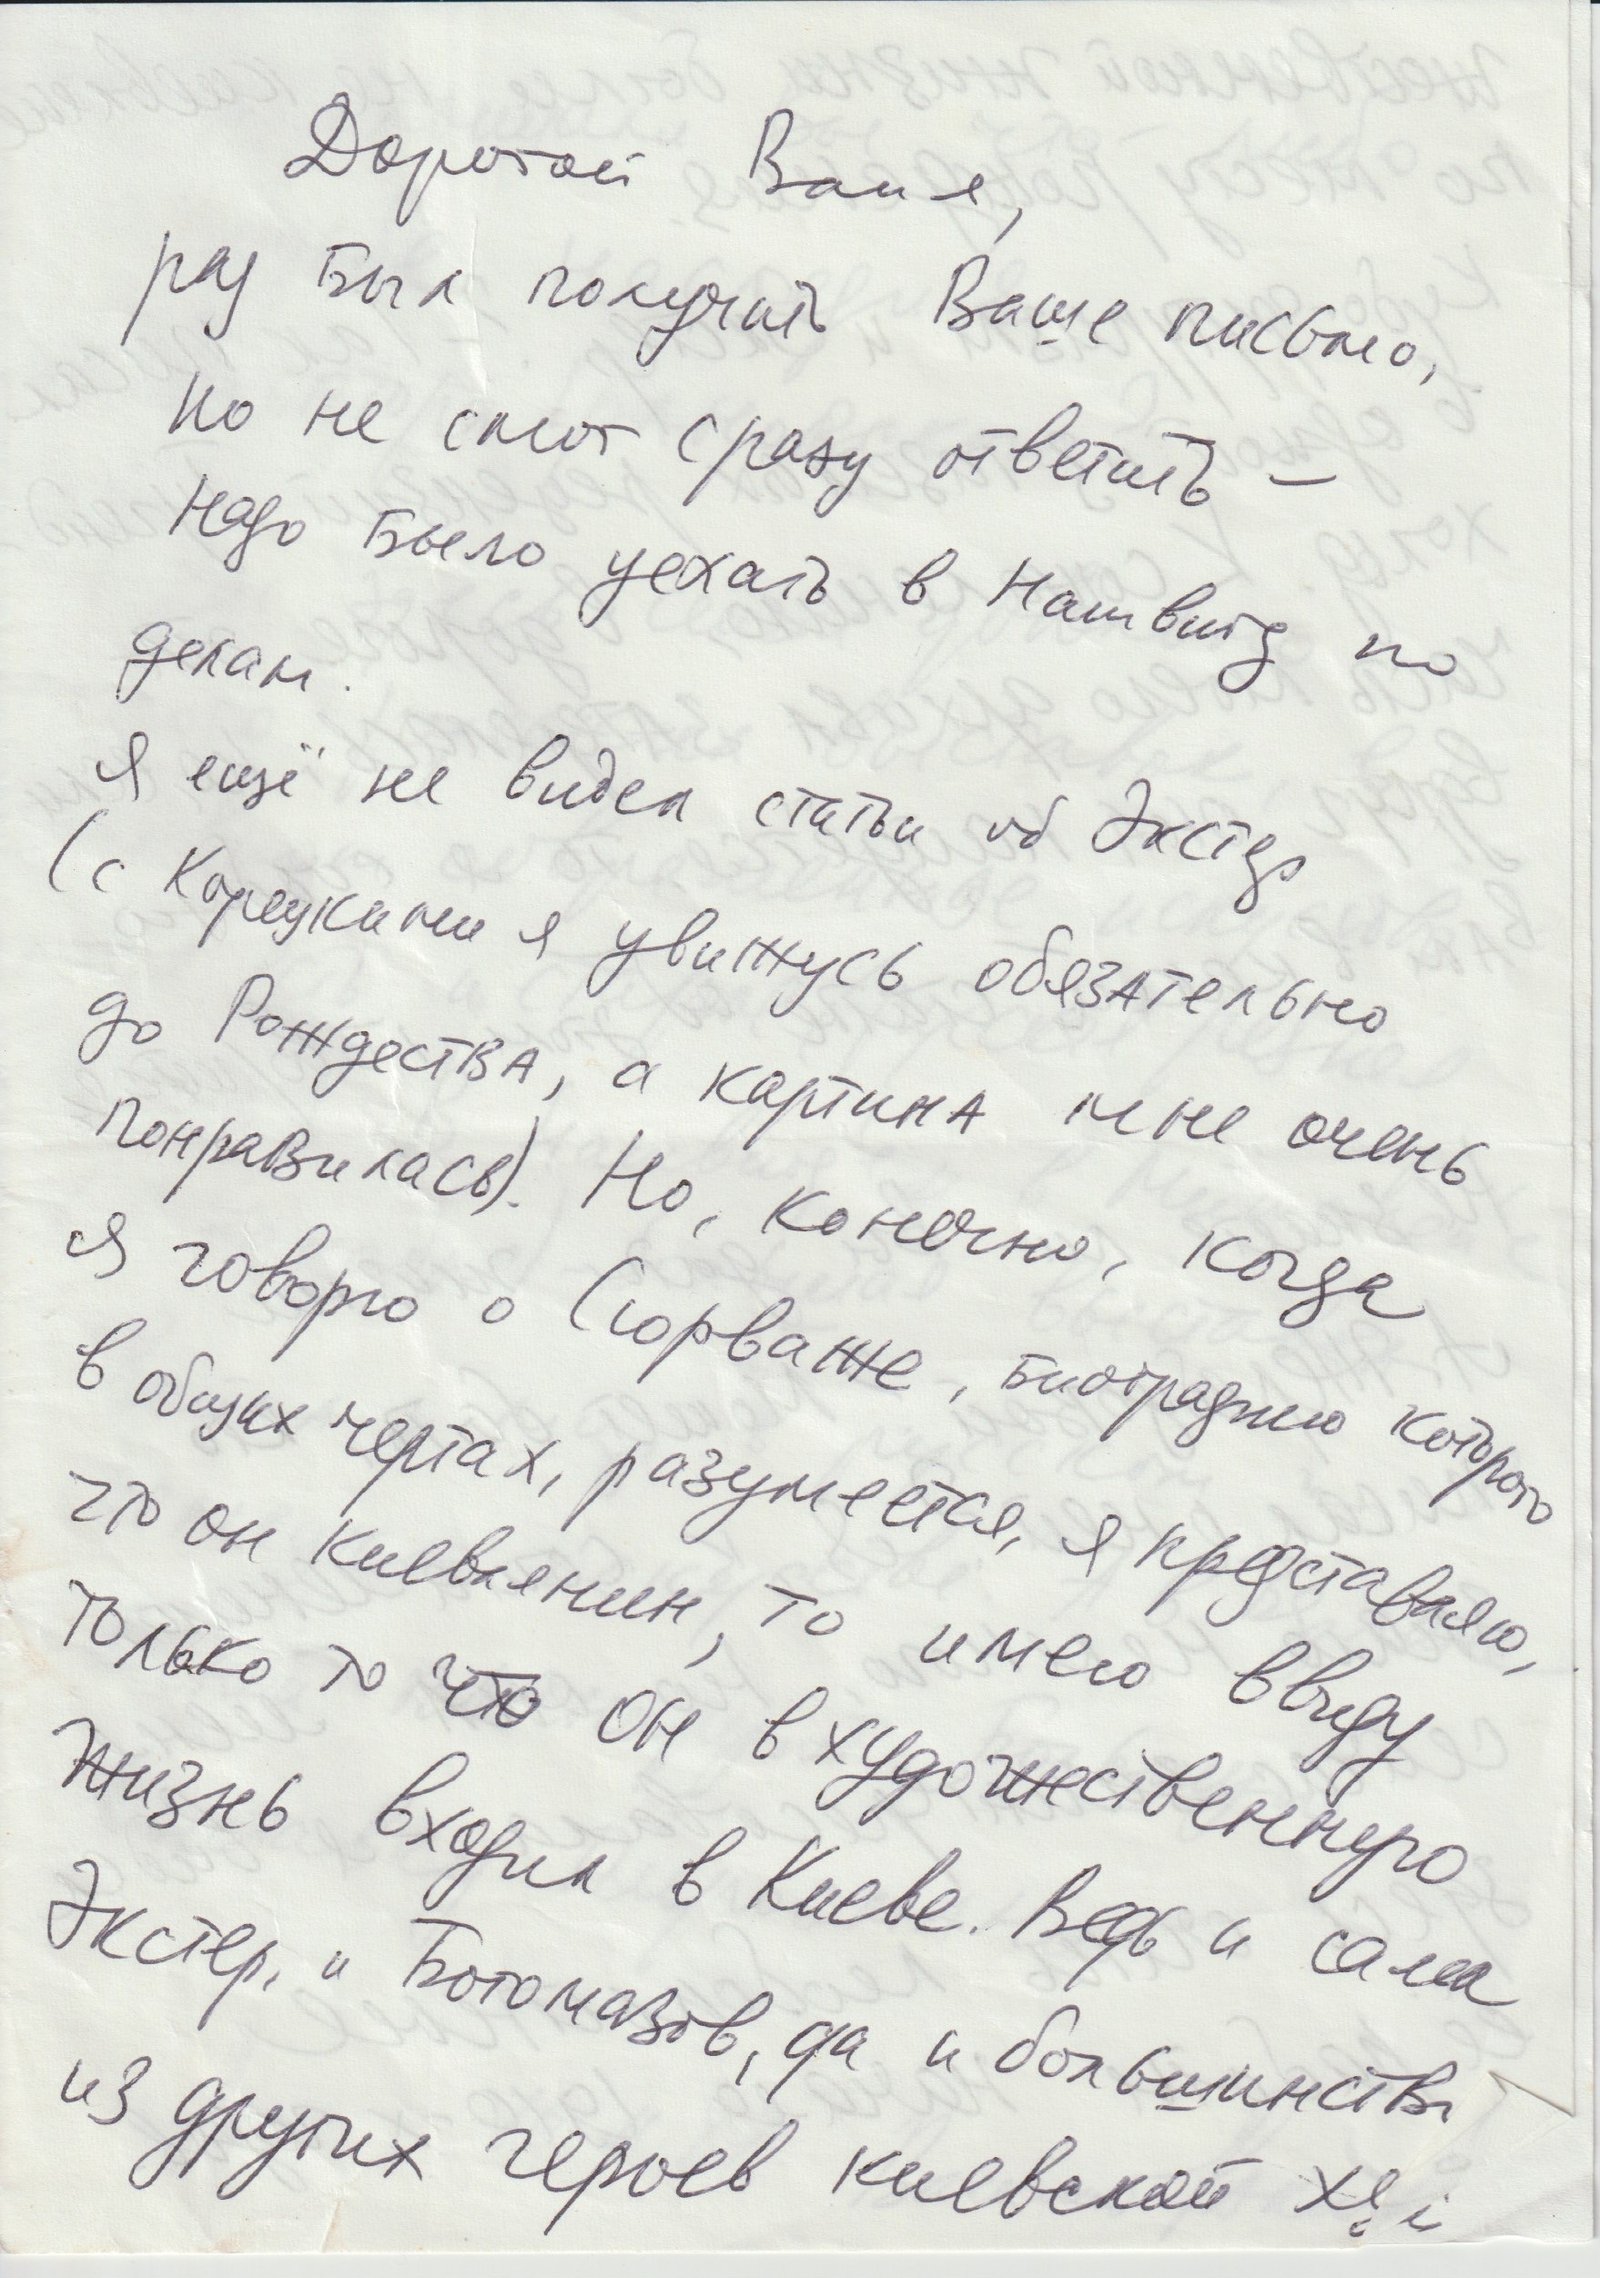 Дорогой Ваня,
рад был получить Ваше письмо,
но не смог сразу ответить —
надо было уехать в Нашвилд по
делам.
Я ещё не видел статьи об Экстер
(с я увижусь обязательно
до Рождества, а картина мне очень
понравилась). Но, конечно, когда
я говорю о Сюрваже, биографию которого
в общих чертах, разумеется, я представляю,
что он киевлянин, то имею ввиду
только то что он в художественную
жизнь входил в Киеве. Ведь и сама
Экстер, и Богомазов, да и большинств
из других героев киевской